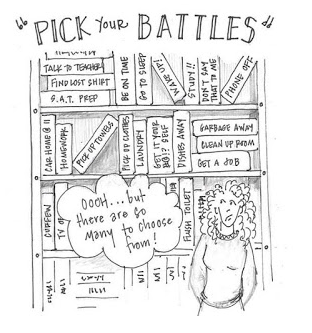 "PICK YOUR BATTLES"
TALK TO TEACHER
FIND LOST SHIRT
S.A.T. PREP
BE ON TIME
GO TO SLEEP
WAKE UP!
STUDY!!
DON'T SAY
THAT TO ME
PHONE OFF
CAR HOME @ 11
HOMEWORK
PICK UP TOWELS
PICK UP CLOTHES
LAUNDRY
GET IT YOUR
SELF
DISHES AWAY
GARBAGE AWAY
CLEAN UP ROOM
GET A JOB
CURFEW
TV OFF
OOOH...but
there are so
many to choose
from!
FLUSH TOILET